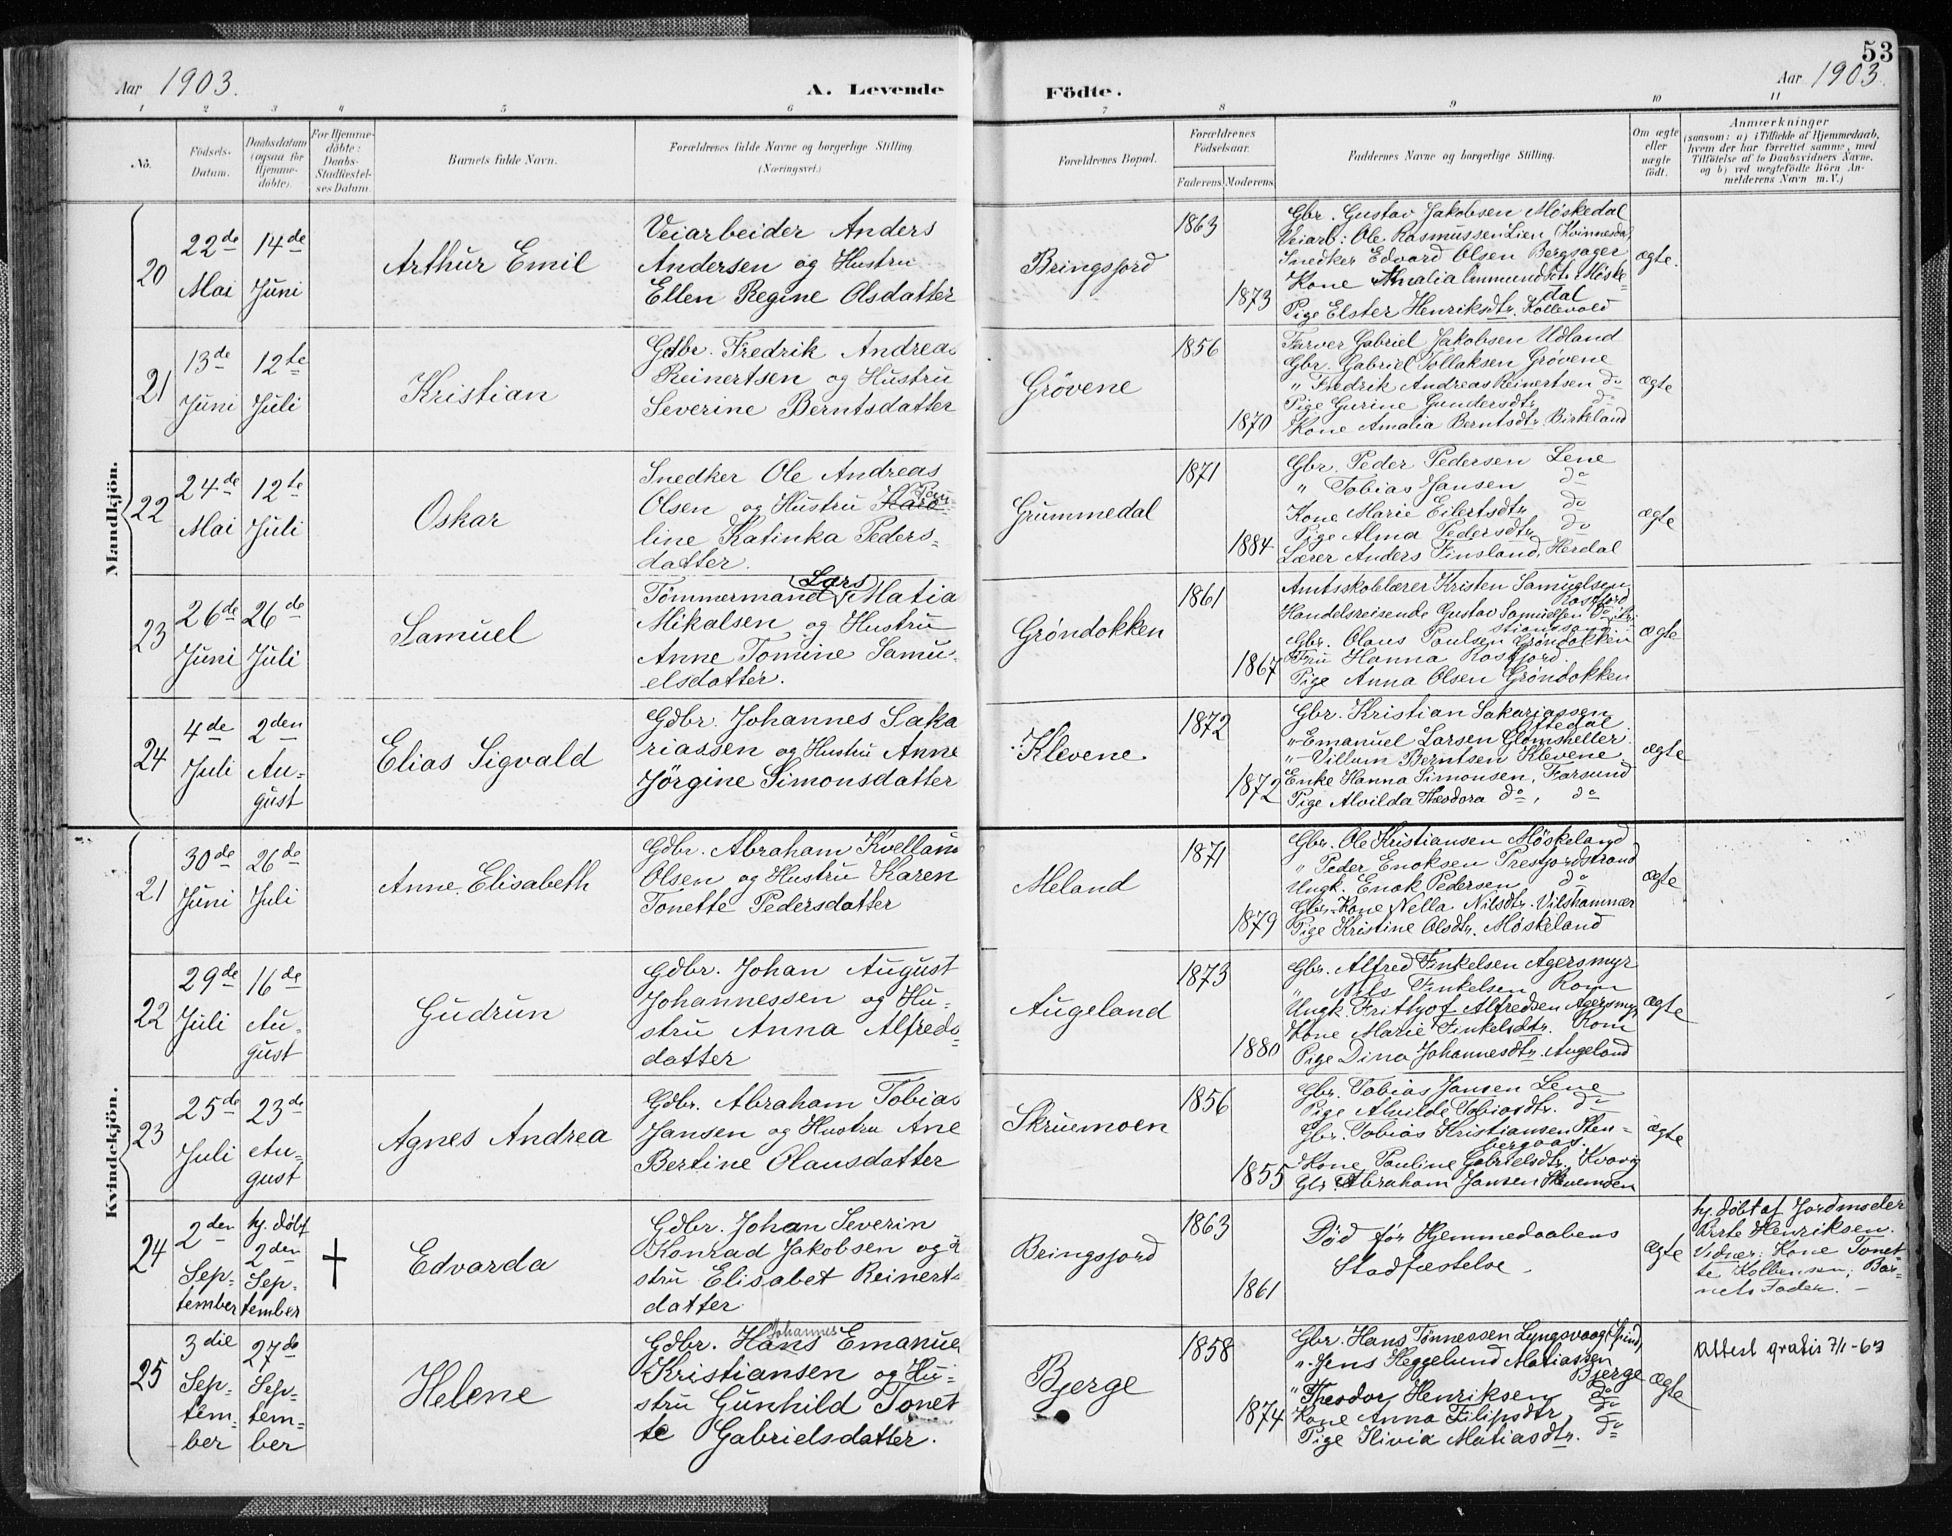 53
Aar 1903.
A. Levende
Födte.
Aar 1903.
1 2 3 4 5 6 7 8 9 10 11
No.
Födsels-
Datum.
Daabsdatum
(ogsaa for
Hjemme-
döbte).
For Hjemme-
döbte:
Daabs-
Stadfæstel-
ses Datum.
Barnets fulde Navn.
Forældrenes fulde Navne og borgerlige Stilling.
(Næringsvei.)
Forældrenes Bopæl.
Forældrenes
Födselsaar.
Faderens. Moderens.
Faddernes Navne og borgerlige Stilling.
Om ægte
eller
uægte
födt.
Anmærkninger
(saasom: a) i Tilfælde af Hjemmedaab,
hvem der har forrettet samme, med
Tilföielse af to Daabsvidners Navne,
og b) ved uægtefödte Börn An-
melderens Navn m. V.)
Mandkjön.
20
22de
Mai
14de
Juni
Arthur Emil
Veiarbeider Anders
Andersen og Hustru
Ellen Regine Olsdatter
Bringsfjord
1863
1873
Gbr. Gustav Jakobsen Møskedal
Veiarb: Ole Rasmussen Lien (Kvinnesdal)
Snedker Edvard Olsen Bergsager
Kone Amalia Ommundsdtr. Møske-
dal
Pige Elster Henriksdtr. Kollevold
ægte.
21
13de
Juni
12te
Juli
Kristian
Gdbr. Fredrik Andreas
Reinertsen og Hustru
Severine Berntsdatter
Grövene
1856
1870
Farver Gabriel Jakobsen Udland
Gbr. Gabriel Tollaksen Grövene
" Fredrik Andreas Reinertsen do
Pige Gurine Gundersdtr. do
Kone Amalia Berntsdtr. Birkeland
ægte
22
24de
Mai
12te
Juli
Oskar
Snedker Ole Andreas
Olsen og Hustru
line Katinka Peders-
datter.
Grummedal
1871
1884
Gbr. Peder Pedersen Lene
" Tobias Jansen do
Kone Marie Eilertsdtr. do
Pige Alma Pedersdtr. do
Lærer Anders Finsland, Herdal
ægte
23
26de
Juni
26de
Juli
Samuel
Tømmermand Lars Matia
Mikalsen og Hustru
Anne Tomine Samu-
elsdatter.
Gröndokken
1861
1867
Amtsskolelærer Kristen Samuelsen
Rosfjord
Handelsreisende Gustav Samuelsen
stianssand
Gbr. Olaus Paulsen Gröndokken
Fru Hanna Rosfjord.
Pige Anna Olsen Gröndokken
ægte
24
4de
Juli
2den
Au-
gust
Elias Sigvald
Gdbr. Johannes Saka
riassen og Hustru Anne
Jörgine Simonsdatter
Klevene.
1872
1872
Gbr. Kristian Sakariassen
Oftedal
" Emanuel Larsen Glomsheller
" Villum Berntsen Klevene
Enke Hanna Simonsen, Farsund
Pige Alvilda Theodora do, do
ægte
Kvindekjön.
21
30de
Juni
26de
Juli
Anne Elisabeth
Gdbr. Abraham Kvelland
Olsen og Hustru Karen
Tonette Pedersdatter
Meland
1871
1879
Gbr. Ole Kristiansen Møskeland
" Peder Enoksen Prestjordstrand
Ungk. Enok Pedersen do
Gbr. Kone Nella Nilsdtr. Vilshammær
Pige Kristine Olsdtr. Møskeland
ægte
22
29de
Juli
16de
Au-
gust
Gudrun
Gdbr. Johan August
Johannessen og Hu-
stru Anna Alfreds-
datter
Augeland
1873
1880
Gbr. Alfred Finkelsen Agersmyr
" Nils Finkelsen Rom
Ungk. Frithjof Alfredsen Agersmyr
Kone Marie Finkelsdtr. Rom
Pige Dina Johannesdtr. Augeland
ægte
23
25de
Juli
23de
Au-
gust
Agnes Andrea
Gdbr. Abraham Tobias
Jansen og Hustru Ane
Bertine Olausdatter
Skruemoen
1856
1855
Gbr. Tobias Jansen Lene
Pige Alvilde Tobiasdtr. do
Gbr. Tobias Kristiansen Sten-
bergaas.
Kone Pauline Gabrielsdtr. Kvavig
Gbr. Abraham Jansen Skruemoen
ægte
24
2den
Sep-
tember
hj. døbt
2den
Sep-
tember
†
Edvarda
Gdbr. Johan Severin
Konrad Jakobsen og
stru Elisabet Reinerts
datter.
Bringsfjord
1863
1861
Død før Hjemmedaabens
Stadfæstelse.
ægte
hj. døbt af Jordmoder
Birte Henriksen.
Vidner: Kone Tonet-
te Kolbensen; Bar-
nets Fader.
25
3die
Sep-
tem-
ber
27de
Sep-
tem-
ber
Helene
Johannes
Gdbr. Hans Emanue
Kristiansen og Hu-
stru Gunhild Tonet
te Gabrielsdatter.
Bjerge
1858
1874
Gbr. Hans Tønnessen Lyngsvaag (Spind)
" Jens Heggelund Matiassen
Bjerge
" Theodor Henriksen do
Kone Anna Filipsdtr. do
Pige Silvia Matiasdtr. do
ægte
Attest gratis 7/1-63